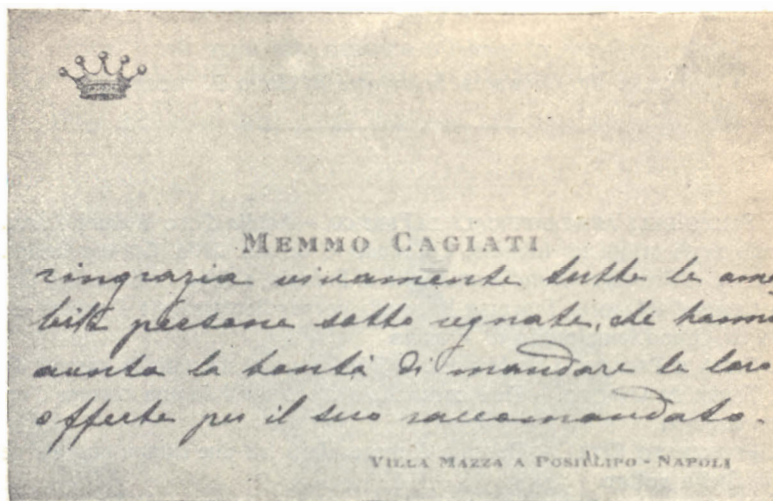 MEMMO CAGIATI
ringrazia vivamente tutte le ama
bili persone sotto segnate, che hanno
avuto la bontà di mandare le loro
offerte per il suo raccomandato.
VILLA MAZZA A POSILLIPO - NAPOLI